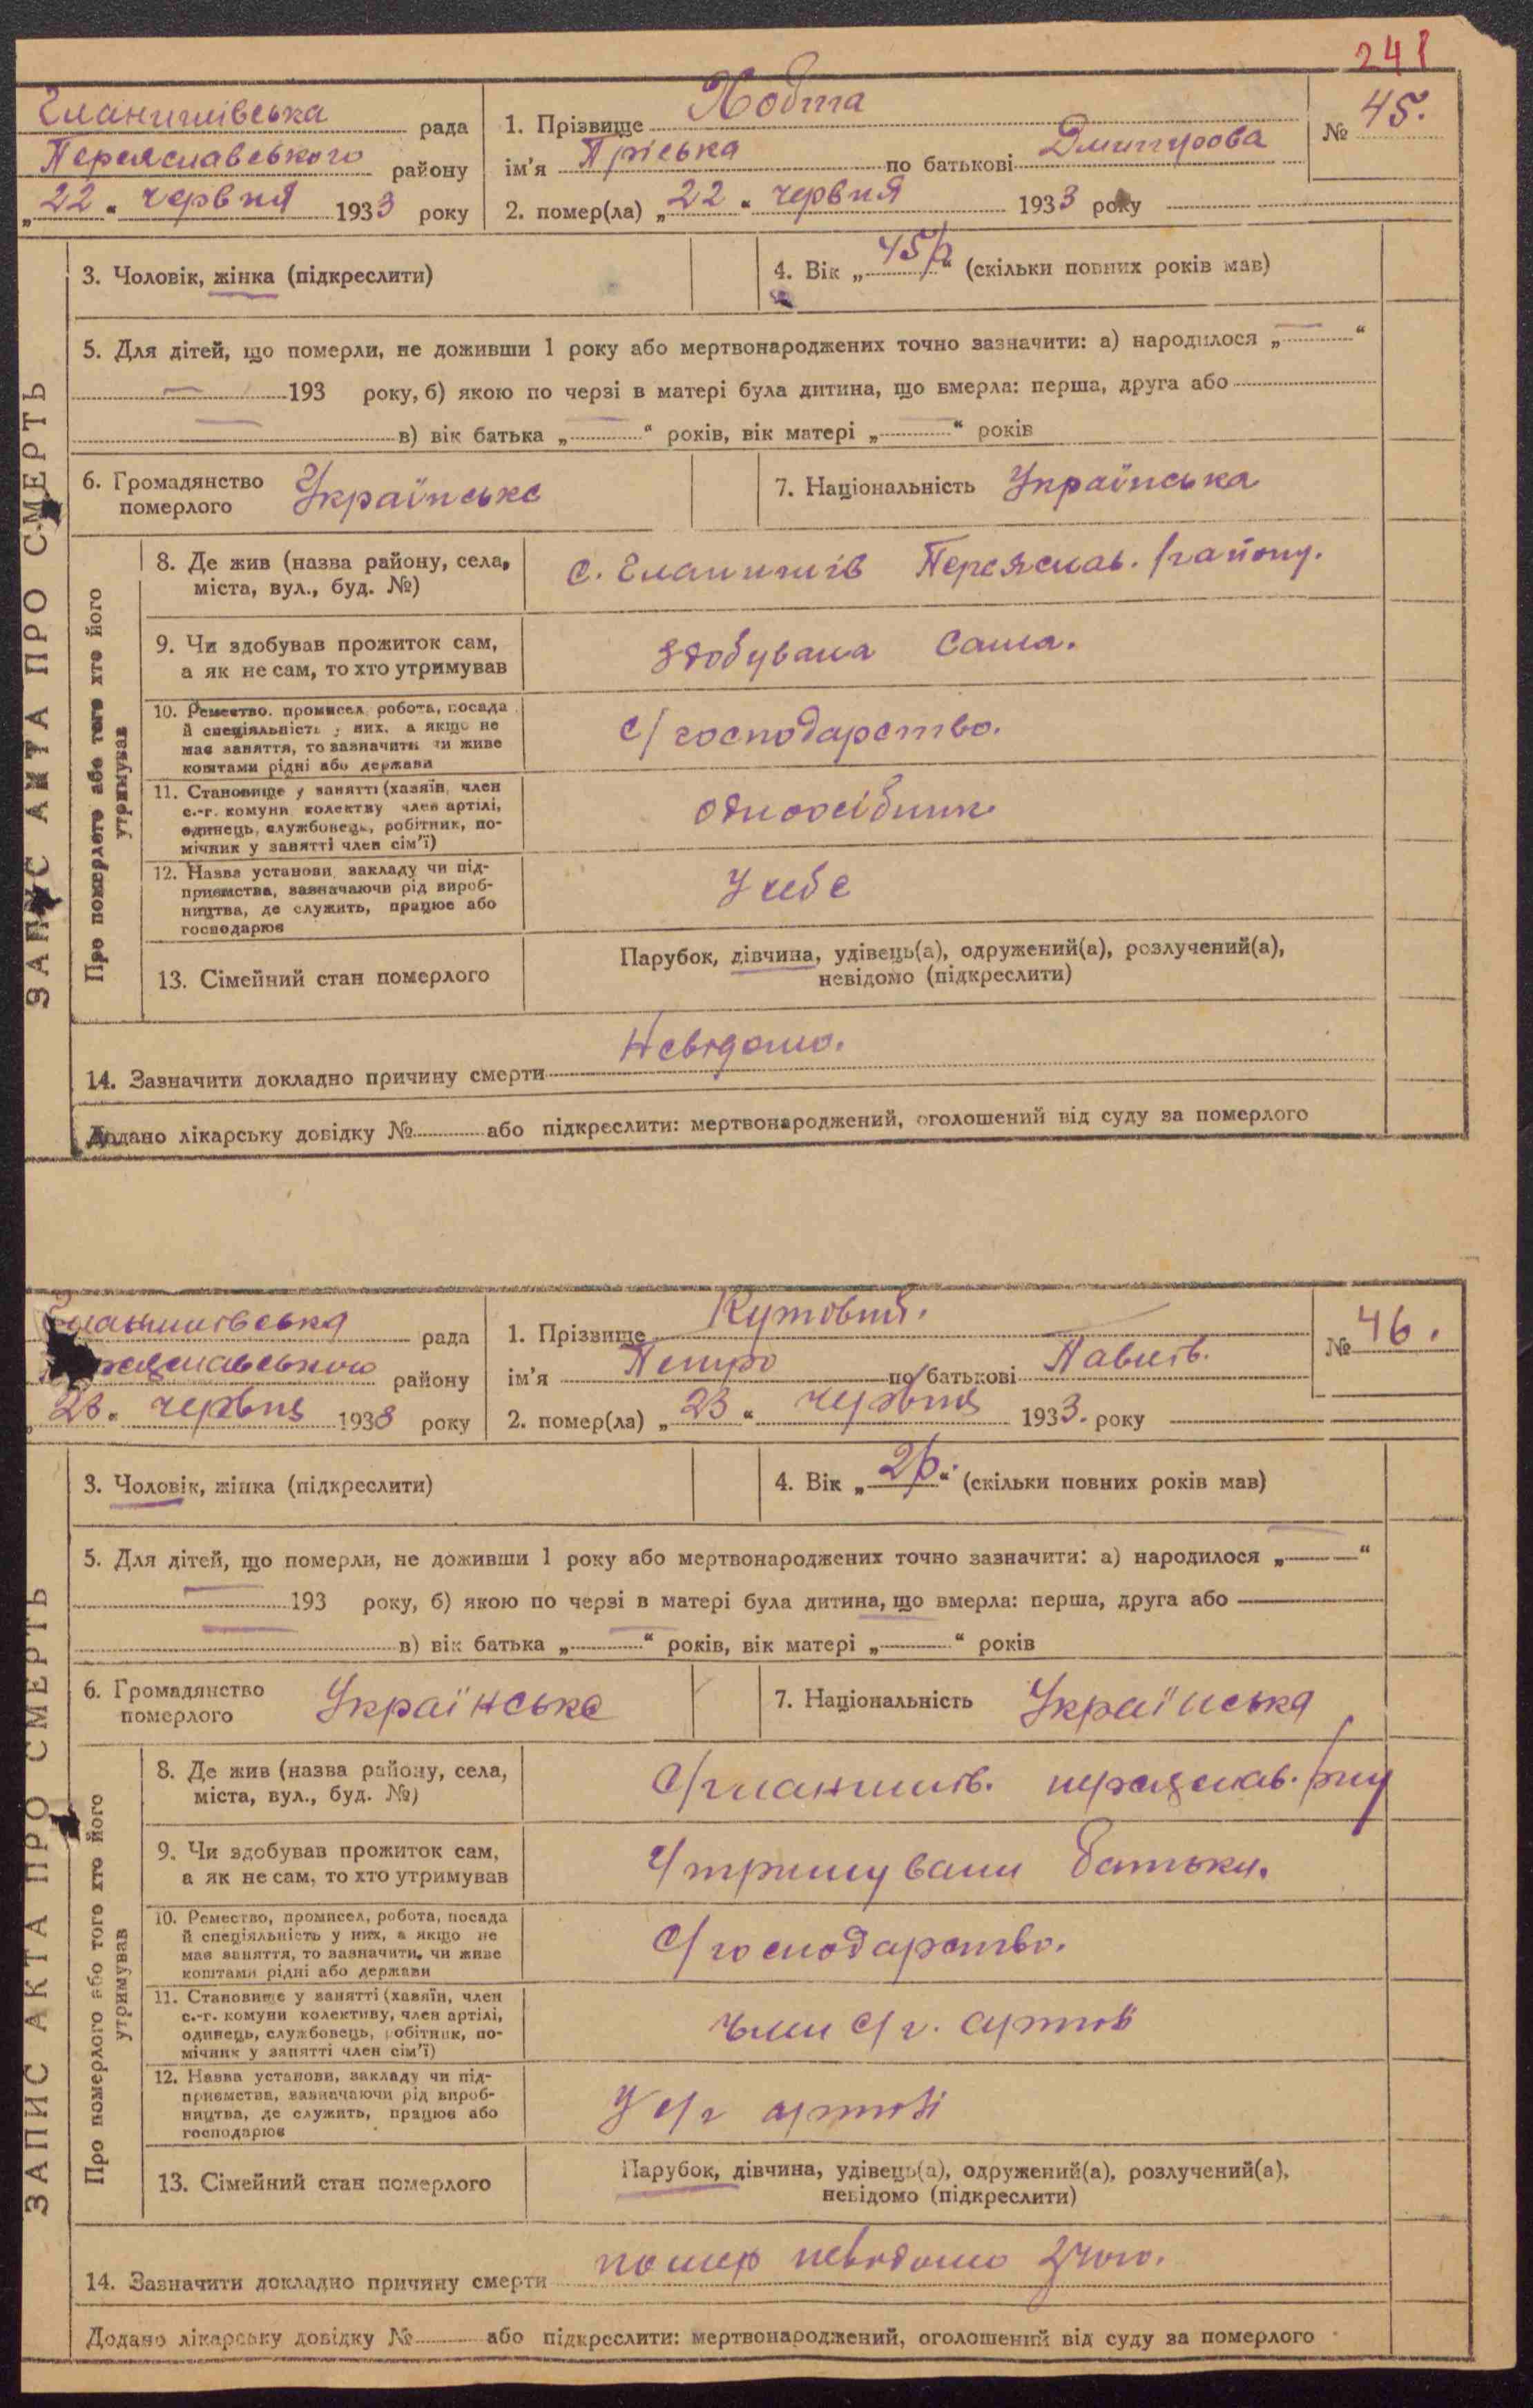 241
Гланишівська рада
Переяславського району
„22“ червня 1933 року
1. Прізвище Ковта № 45.
ім’я Пріська по батькові Дмитрова
2. помер(ла) „22“ червня 1933 року
ЗАПИС АКТА ПРО СМЕРТЬ
3. Чоловік, жінка (підкреслити)
4. Вік „45р“ (скільки повних років мав)
5. Для дітей, що померли, не доживши 1 року або мертвонароджених точно зазначити: а) народилося „—“
— 193 року, б) якою по черзі в матері була дитина, що вмерла: перша, друга або
— в) вік батька „—“ років, вік матері „—“ років
6. Громадянство померлого Українське
7. Національність Українська
Про померлого або того хто його утримував
8. Де жив (назва району, села, міста, вул., буд. №) с. Гланишів Переяслав. району.
9. Чи здобував прожиток сам, а як не сам, то хто утримував
здобувала сама.
10. Ремество, промисел, робота, посада й спеціяльність у них, а якщо не має заняття, то зазначити чи живе коштами рідні або держави
с/господарство.
11. Становище у занятті (хазяїн, член с.-г. комуни колективу член артілі, одинець, службовець, робітник, помічник у занятті член сім’ї)
одноосібник
12. Назва установи, закладу чи підприємства, зазначаючи рід виробництва, де служить, працює або господарює
У себе
13. Сімейний стан померлого
Парубок, дівчина, удівець(а), одружений(а), розлучений(а),
невідомо (підкреслити)
14. Зазначити докладно причину смерти Невідомо.
Додано лікарську довідку № або підкреслити: мертвонароджений, оголошений від суду за померлого
Гланишівська рада
Переяславського району
„23“ червня 1933 року
1. Прізвище Кутовий. № 46.
ім’я Петро по батькові Павлів.
2. помер(ла) „23“ червня 1933. року
ЗАПИС АКТА ПРО СМЕРТЬ
3. Чоловік, жінка (підкреслити)
4. Вік „2р.“ (скільки повних років мав)
5. Для дітей, що померли, не доживши 1 року або мертвонароджених точно зазначити: а) народилося „—“
— 193 року, б) якою по черзі в матері була дитина, що вмерла: перша, друга або
— в) вік батька „—“ років, вік матері „—“ років
6. Громадянство померлого Українське
7. Національність Українська
Про померлого або того хто його утримував
8. Де жив (назва району, села, міста, вул., буд. №) С/гланишів. переяслав. р-ну
9. Чи здобував прожиток сам, а як не сам, то хто утримував
Утримували батьки.
10. Ремество, промисел, робота, посада й спеціяльність у них, а якщо не має заняття, то зазначити, чи живе коштами рідні або держави
С/господарство.
11. Становище у занятті (хазяїн, член с.-г. комуни колективу, член артілі, одинець, службовець, робітник, помічник у занятті член сім’ї)
член с/г. артілі
12. Назва установи, закладу чи підприємства, зазначаючи рід виробництва, де служить, працює або господарює
У с/г артілі
13. Сімейний стан померлого
Парубок, дівчина, удівець(а), одружений(а), розлучений(а),
невідомо (підкреслити)
14. Зазначити докладно причину смерти помер невідомо з чого.
Додано лікарську довідку № або підкреслити: мертвонароджений, оголошений від суду за померлого